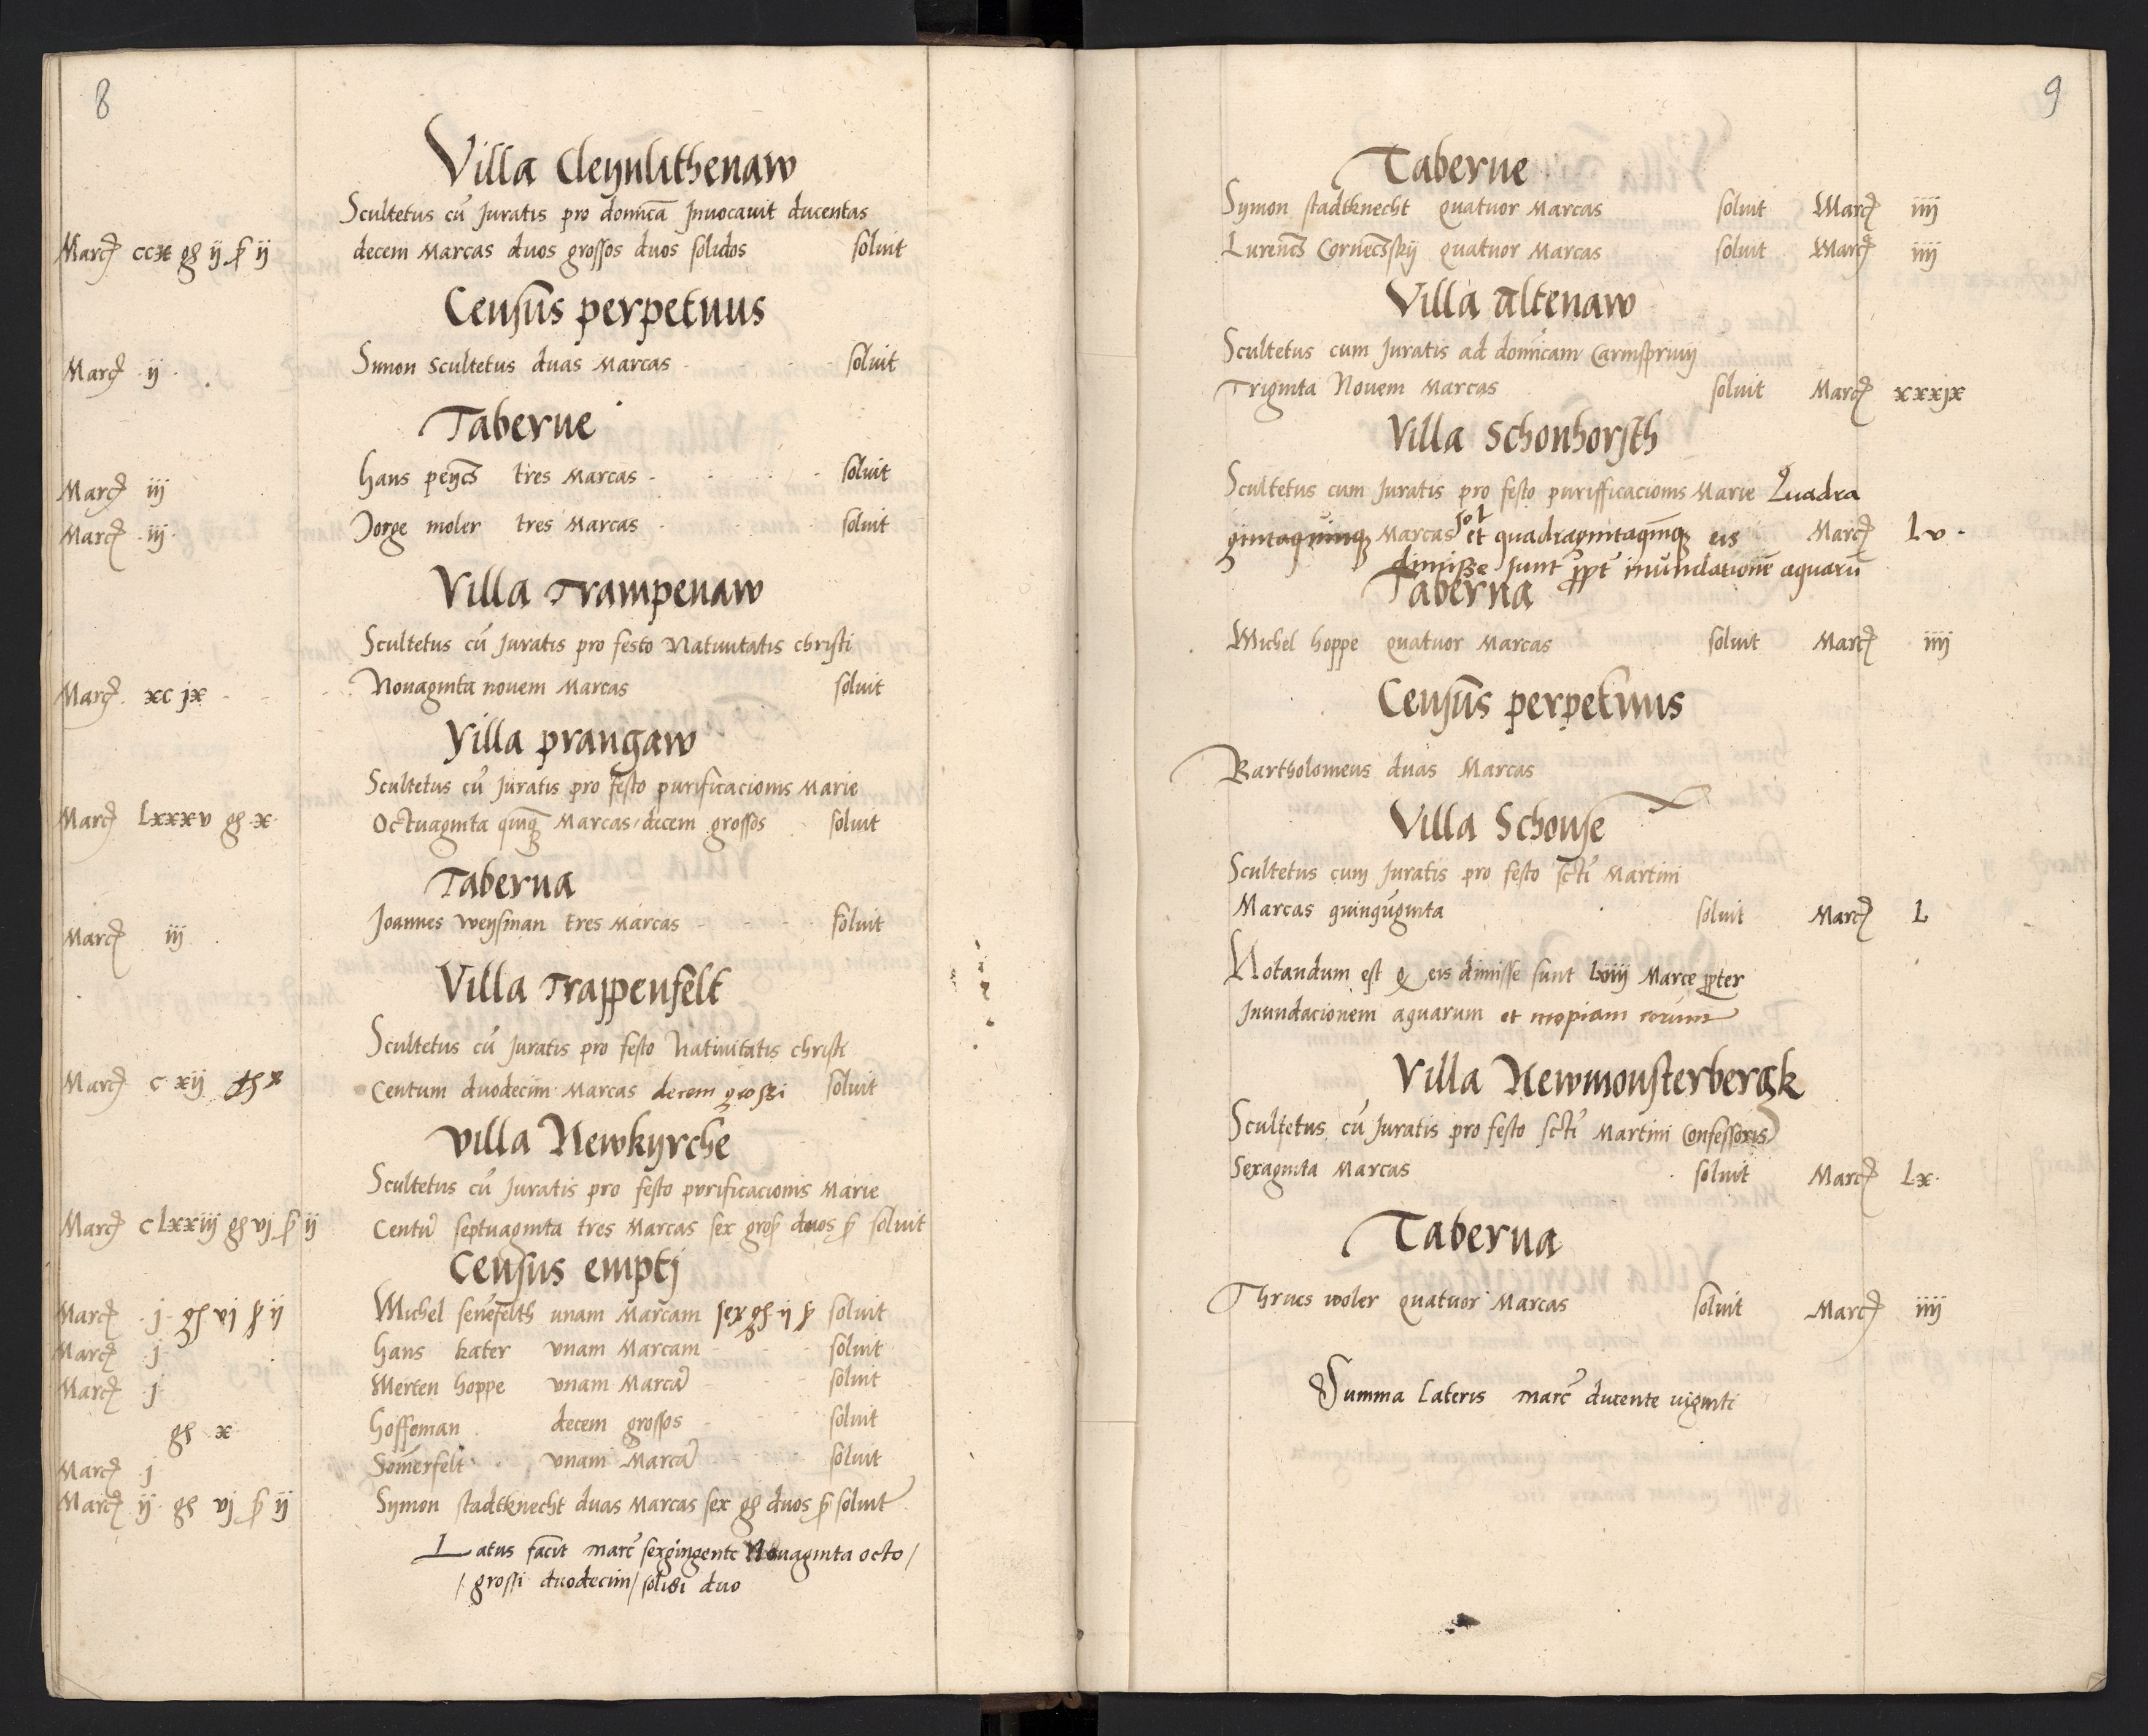 8
Villa Cleynlithenaw
Scultetus cū Juratis pro donica Jnuocauit ducentas
Marc ccx gh ij ꝑ ij decem Marcas duos grossos duos solidos soluit
Census perpetuus
Marc ij Simon scultetus duas Marcas soluit
Taberne
Marc iij hans peycz tres Marcas soluit
Marc iij Jorge moler tres Marcas soluit
Villa Trampenaw
Scultetus cū Juratis pro festo Natiuitatis christi
Marc xc jx Nonaginta nouem Marcas soluit
Villa prangaw
Scultetus cū Juratis pro festo purificacionis Marie
Marc Lxxxv gh x Octuaginta quinq Marcas decem grossos soluit
Taberna
Marc iij Joannes weysman tres Marcas soluit
Villa Trappenfelt
Scultetus cū Juratis pro festo Natiuitatis christi
Marc c xij gh x Centum duodecim Marcas decem grossi soluit
Villa Newkyrche
Scultetus cū Juratis pro festo purificacionis Marie
Marc c Lxxiij gh vj ꝑ ij Centū septuaginta tres Marcas sex gros duos ꝑ soluit
Census emptj
Marc j gh vj ꝑ ij Michel senefelth unam Marcam sex gh ij ꝑ soluit
Marc j hans kater vnam Marcam soluit
Marc j Merten hoppe vnam Marcā soluit
gh x hoffeman decem grossos soluit
Marc j Somerfelt vnam Marcā soluit
Marc ij gh vj ꝑ ij Symon stadtknecht duas Marcas sex gh duos ꝑ soluit
Latus facit marc sexgingente Nonaginta octo /
/ grossi duodecim / solidi duo
9
Taberne
Symon stadtknecht quatuor Marcas soluit Marc iiij
Lurencz Corneczsky quatuor Marcas soluit Marc iiij
Villa altenaw
Scultetus cum Juratis ad donicam Carnispriuij
Triginta Nouem Marcas soluit Marc xxxjx
Villa Schonhorsth
Scultetus cum Juratis pro festo purifficacionis Marie Quadra
gintaquinq Marcas sol et quadragintaquinq eis Marc Lv
dimisse sunt ꝓpt inundationē aquarū
Taberna
Michel hoppe quatuor Marcas soluit Marc iiij
Census perpetuus
Bartholomeus duas Marcas
Villa Schonse
Scultetus cum Juratis pro festo scti Martini
Marcas quinquginta soluit Marc L
Notandum est q eis dimisse sunt Lxiiij Marce ꝓpter
Jnundacionem aquarum et inopiam eorum
Villa Newmonsterbergk
Scultetus cū Juratis pro festo scti Martini Confessoris
Sexaginta Marcas soluit Marc Lx
Taberna
woler quatuor Marcas soluit Marc iiij
Summa Lateris marc ducente viginti